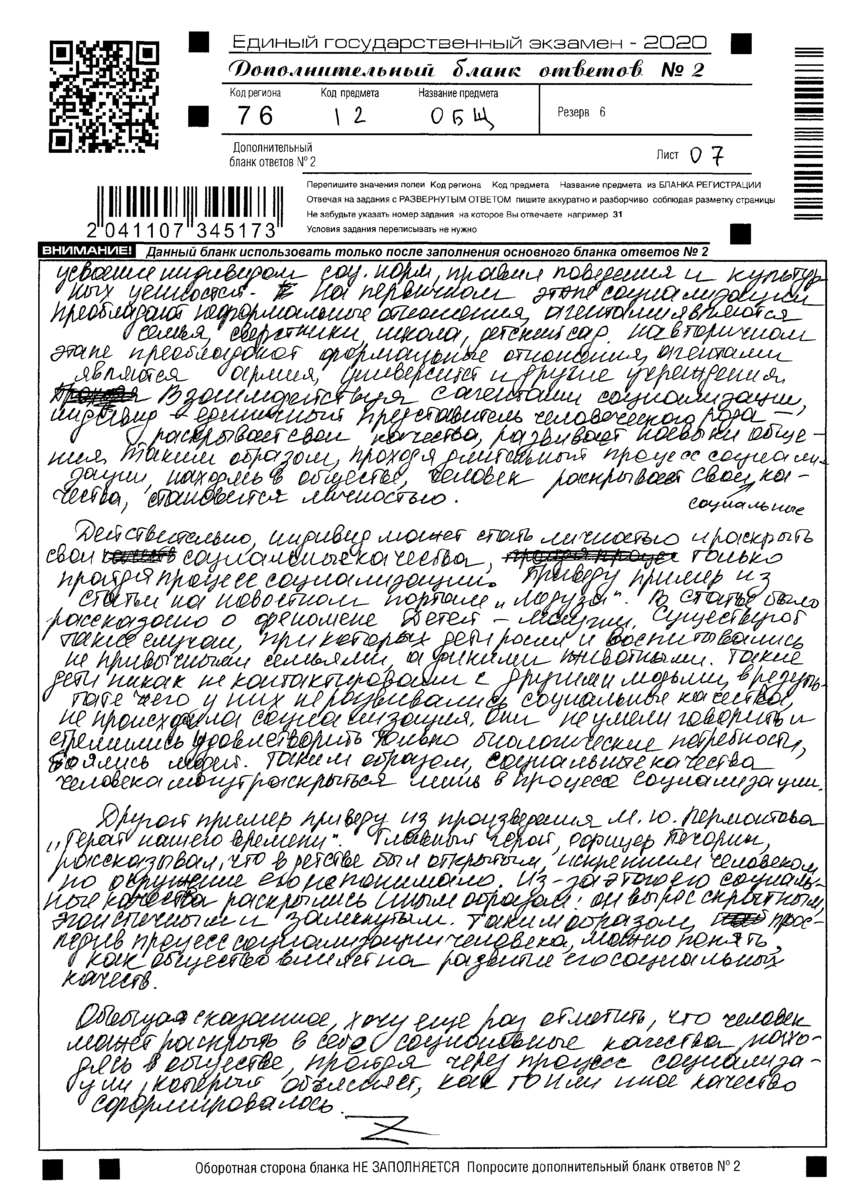 Единый государственный экзамен - 2020
Дополнительный бланк ответов № 2
Код региона Код предмета Название предмета
76 12 ОБЩ Резерв 6
Дополнительный
бланк ответов № 2
Лист 07
Перепишите значения полей Код региона Код предмета Название предмета из БЛАНКА РЕГИСТРАЦИИ
Отвечая на задания с РАЗВЕРНУТЫМ ОТВЕТОМ пишите аккуратно и разборчиво соблюдая разметку страницы
Не забудьте указать номер задания на которое Вы отвечаете например 31
Условия задания переписывать не нужно
2 041107 345173
ВНИМАНИЕ! Данный бланк использовать только после заполнения основного бланка ответов № 2
усвоение индивидом соц. норм, правил поведения и культур-
ных ценностей. На первичном этапе социализации
преобладают неформальные отношения, агентами являются
семья, сверстники, школа, детский сад. На вторичном
этапе преобладают формальные отношения, агентами
являются армия, университет и другие учреждения.
Взаимодействуя с агентами социализации,
индивид – единичный представитель человеческого рода –
раскрывает свои качества, развивает навыки обще-
ния. Таким образом, проходя длительный процесс социали-
зации, находясь в обществе, человек раскрывает свои ка-
чества, становится личностью. социальные
Действительно, индивид может стать личностью и раскрыть
свои социальные качества, только
пройдя процесс социализации. Приведу пример из
статьи на новостном портале „Медуза". В статье было
рассказано о феномене Детей – Маугли. Существуют
такие случаи, при которых дети росли и воспитывались
не привычными семьями, а дикими животными. Такие
дети никак не контактировали с другими людьми, в резуль-
тате чего у них не развивались социальные качества,
не происходила социализация, они не умели говорить и
стремились удовлетворить только биологические потребности,
боялись людей. Таким образом, социальные качества
человека могут раскрыться лишь в процессе социализации.
Другой пример приведу из произведения М. Ю. Лермонтова
„Герой нашего времени". Главный герой, офицер Печорин,
рассказывал, что в детстве был открытым, искренним человеком,
но окружение его не понимало. Из-за этого его социаль-
ные качества раскрылись иным образом: он вырос скрытным,
эгоистичным и замкнутым. Таким образом, прос-
ледив процесс социализации человека, можно понять,
как общество влияет на развитие его социальных
качеств.
Обобщая сказанное, хочу еще раз отметить, что человек
может раскрыть в себе социальные качества, нахо-
дясь в обществе, пройдя через процесс социализа-
ции, который объясняет, как то или иное качество
сформировалось.
Оборотная сторона бланка НЕ ЗАПОЛНЯЕТСЯ Попросите дополнительный бланк ответов № 2